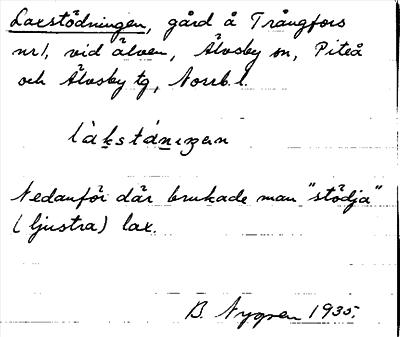 Laxstödningen, gård å Trångfors
nr 1, vid älven, Älvsby sn, Piteå
och Älvsby tg, Norrb. l.
làkstádnıŋɛn
Nedanför där brukade man "stödja"
(ljustra) lax.
B. Nygren 1935.